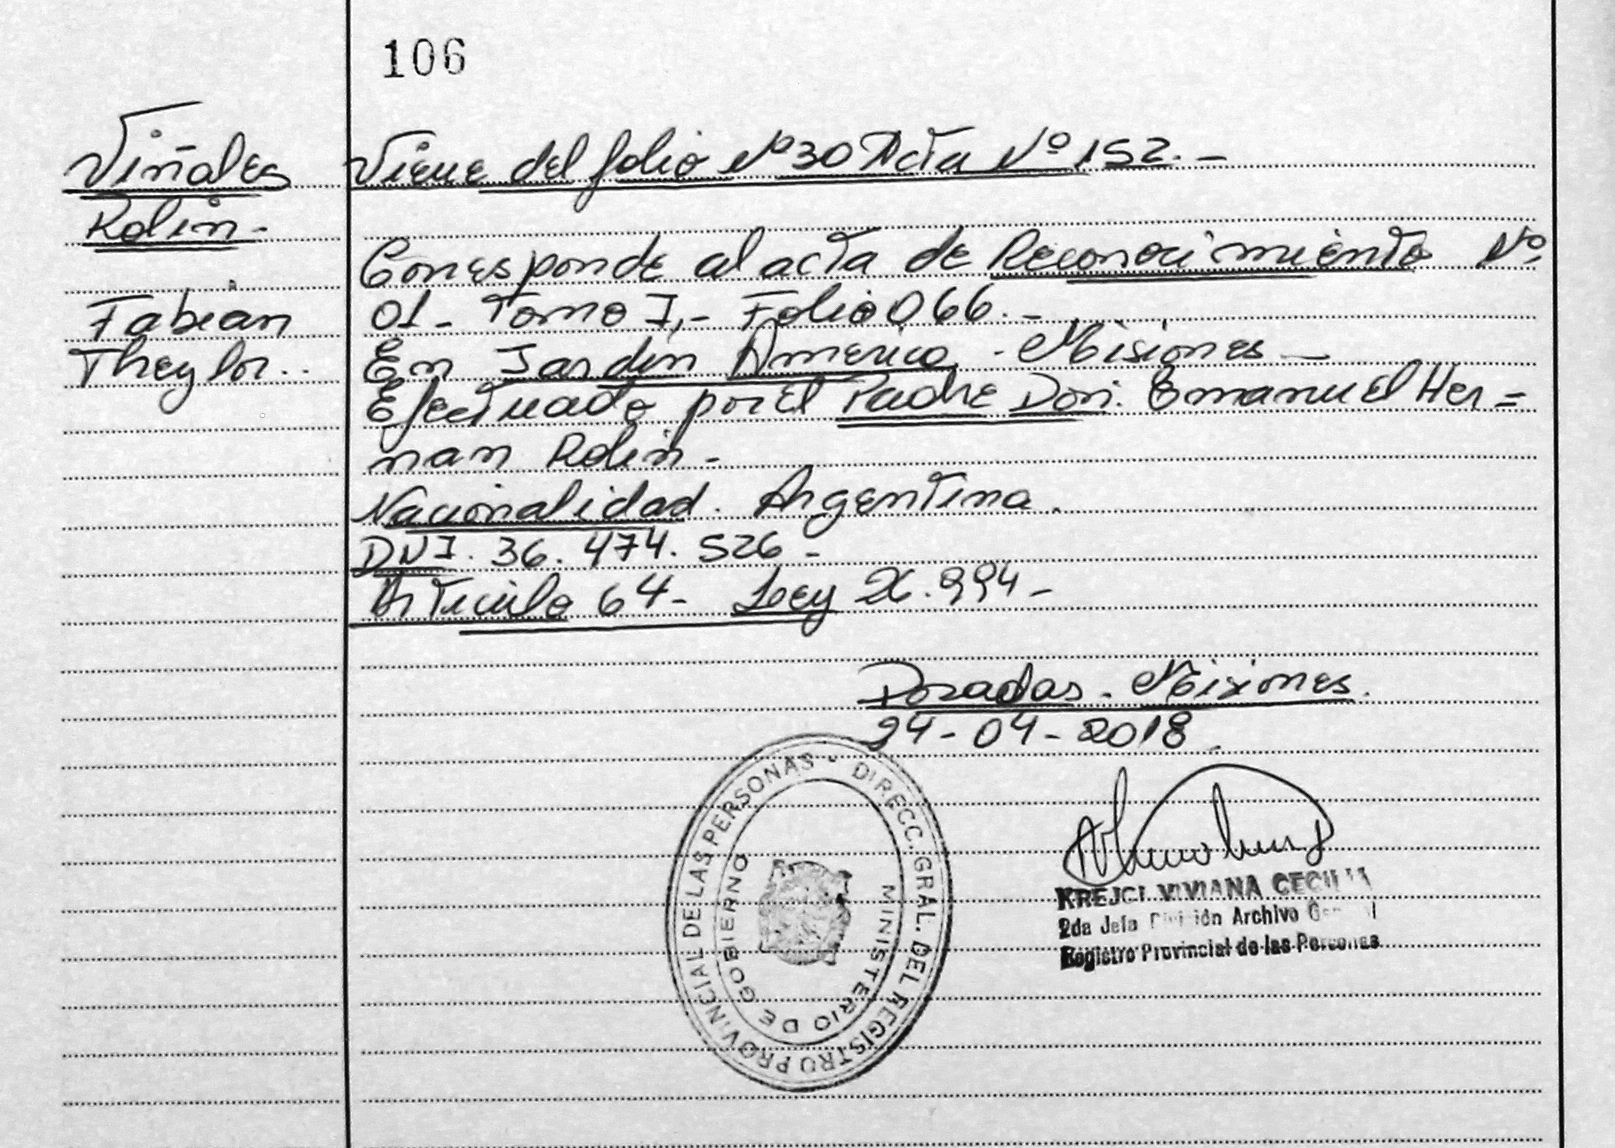 106
Viñales
Rolin.-
Fabian
Theylor..
Viene del folio Nº 30 Acta Nº 152.-
Corresponde al acta de Reconocimiento Nº
01- Tomo I,- Folio 066.-
En Jardin America.- Misiones-
Efectuado por el Padre Don. Emanuel Her=
nan Rolin-
Nacionalidad. Argentina.
DNI. 36.474.526-
Articulo 64- Ley 26.994-
Posadas- Misiones.
24-04-2018.
REGISTRO PROVINCIAL DE LAS PERSONAS - DIRECC. GRAL. DEL
MINISTERIO DE GOBIERNO
KREJCI VIVIANA CECILIA
2da Jefa División Archivo General
Registro Provincial de las Personas